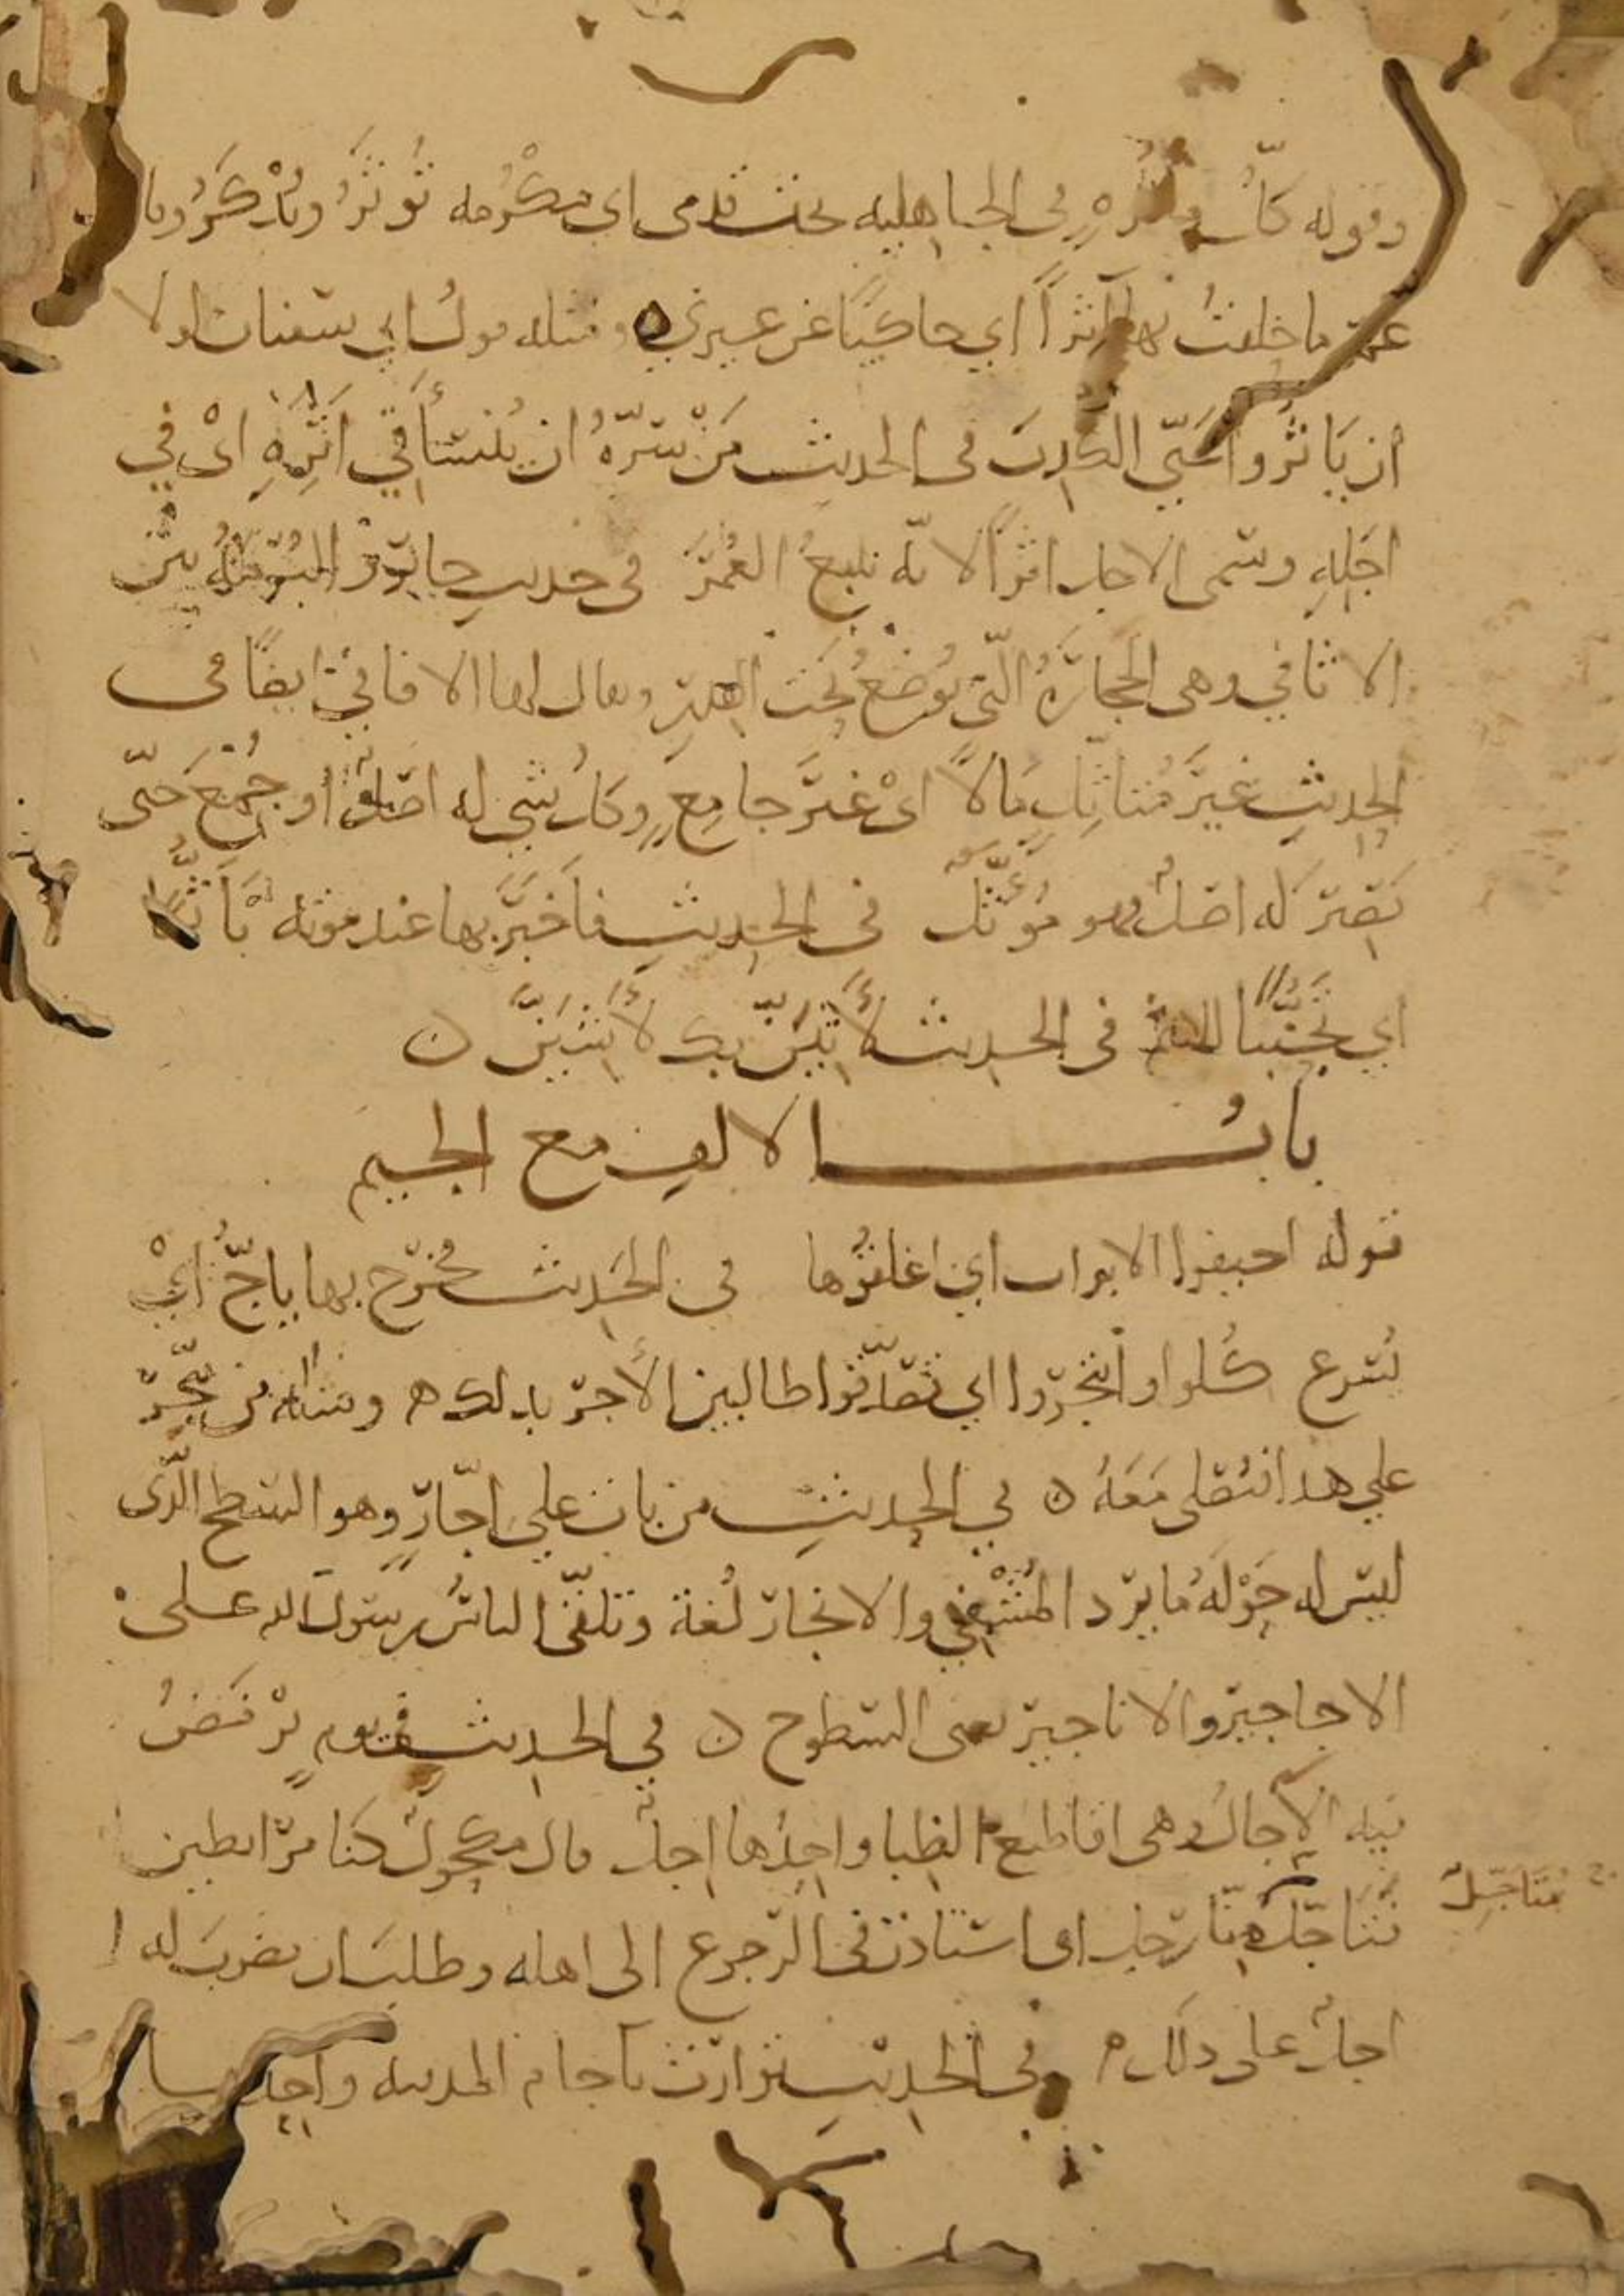 وقوله كل مأثره في الجاهليه تحت قدمي اي مكرمه تُوثَرُ وتُذْكَرُ وقال
عمر ما حلفتُ بها آثرًا اي حاكيًا عن غيري ومثله قول ابي سفيان لولا
ان يَاثُروا عَنّي الكذِبَ في الحديث مَنْ سَرّهُ ان يُنسَأَ في اَثَرِهِ ايْ في
اجَلِهِ وسمى الاجل اثرًا لانّه يتبعُ العُمْرَ في حديث جابر والبُرْمَةُ بين
الاثافي وهي الحجارةُ الّتي تُوضَعُ تحت القدر ويقال لها الاثافيّ ايضًا في
الحديثِ غيرَ مُتاثّلٍ مَالًا ايْ غيرَ جامِعٍ وكل شيءٍ له اصْلٌ او جُمِعَ حتّى
يَصِيرَ له اصلٌ فهو مُؤَثَّلٌ في الحديث فاَخبَرَ بها عند موته تَأَثُّمًا
اي تَجَنُّبًا للاثم في الحديث لأَثِيَنّ بك لأَشِيَنَّ
بابُ الالف مع الجيم
قوله اجيفوا الابواب اي اغلقُوها في الحَديث يخرُج بها ياجّ ايْ
يُسرع كُلوا واتَّجروا اي تصَدّقُوا طالبين الأجرَ بذلك ومثله من يَّتجرُ
علي هذا فيُصلى مَعَهُ في الحديثِ من بات علي اجّارٍ وهو السطح الّذي
ليس له حَوْلَهُ مَا يرد المُشْفِي والانجار لُغة وتلقّى الناسُ رسولَ الله على
الاجاجير والاناجير يعنى السطوح في الحديث في يومٍ تَرْمَضُ
فيه الآجالُ وهى اقاطيع الظبا واحِدُها اِجلٌ قال مكحولٌ كنا مرابطين
فَتَأجَّلَ مِنّا رجلٌ اى استاذن في الرجوع الى اهله وطلبَ ان يضربَ له
مُتَأجِّلٌ
اجلٌ على ذلك وفي الحديث توارَت بآجام المدينه واحِدها